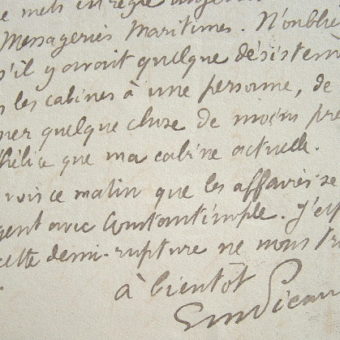 me mets en règle
Messageries Maritimes. N'oublie
s'il y avait quelque désistem
les cabines à une personne, de
ner quelque chose de moins pr
hélice que ma cabine actuelle.
vois ce matin que les affaires se
gent avec Constantinople. J'es
cette demi-rupture ne nous tr
à bientôt